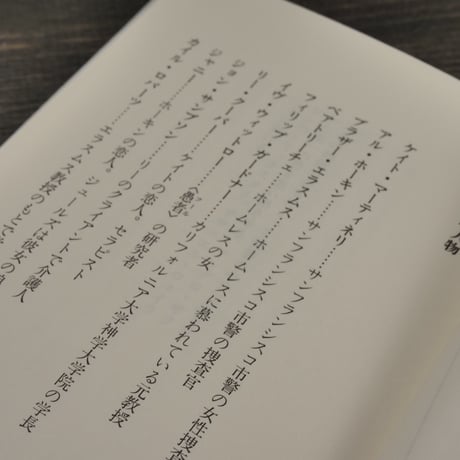 人物
ケイト・マーティネリ……サンフランシスコ市警の女性捜査
アル・ホーキン……サンフランシスコ市警の捜査官
ブラザー・エラスムス……ホームレスに慕われている元教授
ベアトリーチェ……ホームレスの女
フィリップ・ガードナー……カリフォルニア大学神学大学院の学長
イヴ・ウィットロー……〈愚者〉の研究者
リー・クーパー……ケイトの恋人。セラピスト
ジョン・サンプソン……リーのクライアントで介護人
ジャニー……ホーキンの恋人。ジュールズは彼女の
カイル・ロバーツ……エラスムス教授のもとで